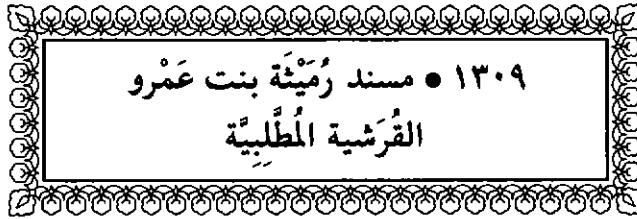 ١٣٠٩ • مسند رُمَيْثَة بنت عَمْرو
القُرَشية المُطَّلِبِيَّة